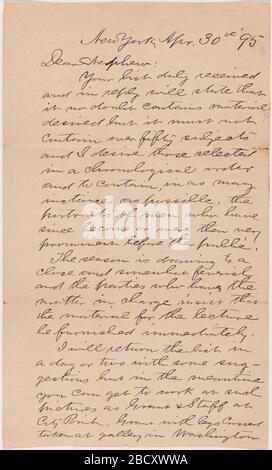 New York, Apr. 30th 95
Dear Nephew:
Your list duly received
and in reply will state that
it no doubt contains material
desired but it must not
contain over fifty subjects
and I desire those selected
in a chronological order
and to contain, in as many
instances as possible, the
portraits of men who have
since become or was then very
prominent before the public.
The season is drawing to a
close and somewhat feverish
and the parties who have the
matter in charge insist that
the material for the lecture
be furnished immediately.
I will return the list in
a day or two with some sug-
gestions but in the meantime
you can get to work at such
pictures as Grant & Staff at
City Point, Grant with legs crossed
taken at gallery in Washington
alamy
Image ID: 2BCXWWA
www.alamy.com